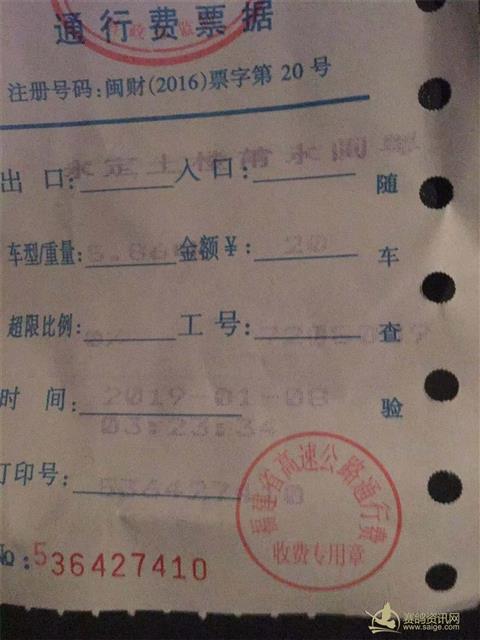 通行费票据
注册号码:闽财(2016)票字第 20 号
永定土楼莆永闽粤
出 口: 入口:
车型/重量: 金额¥: 20
超限比例: 0% 工号:
时 间: 2019-01-08
03:23:34
打印号:
No:536427410
随车查验
福建省高速公路通行费
收费专用章
赛鸽资讯网
www.saige.com